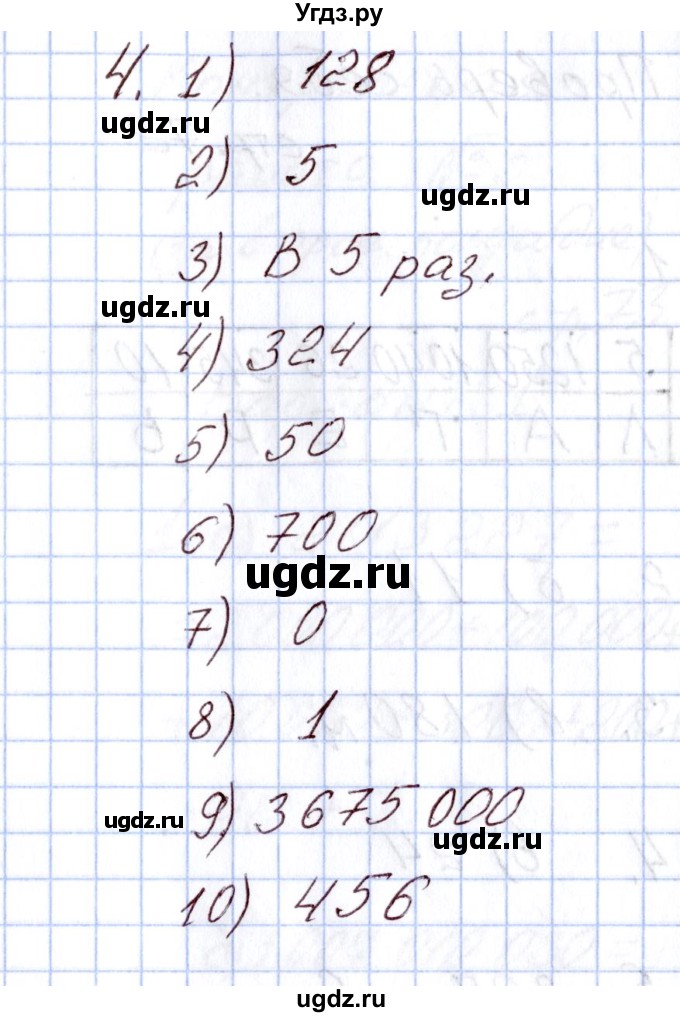 Угдз.ру
4. 1) 128
ugdz.ru
2) 5
ugdz.ru
3) В 5 раз.
ugdz.ru
4) 324
5) 50
6) 700
ugdz.ru
7) 0
8) 1
ugdz.ru
9) 3675 000
ugdz.ru
10) 456
ugdz.ru